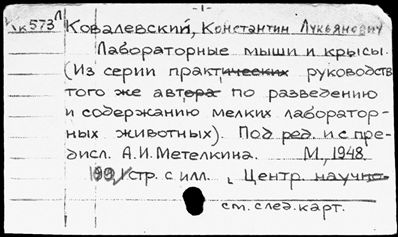 -1-
К573 Л Ковалевский, Константин Лукьянович
Лабораторные мыши и крысы.
(Из серии практических руководств
того же автора по разведению
и содержанию мелких лаборатор-
ных животных). Под ред. и с пре-
дисл. А.И. Метелкина. М, 1948.
99, 1 стр. с илл. , Центр. научно-
см. след. карт.